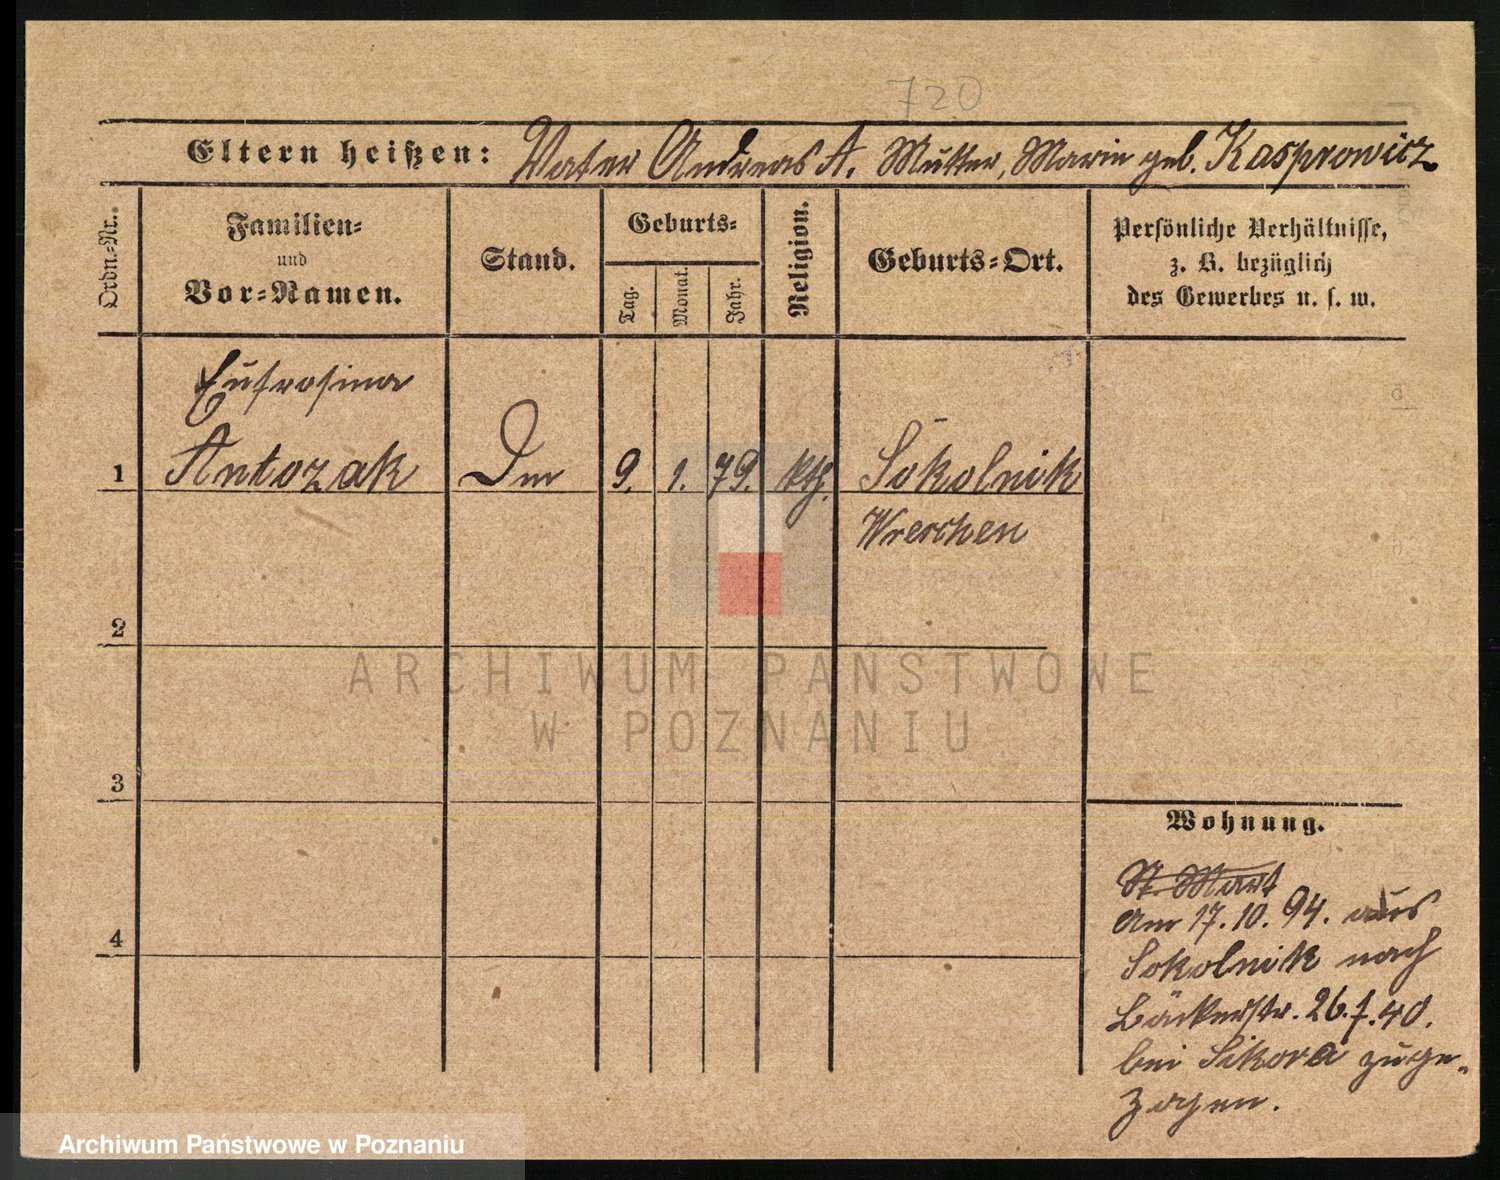 720
Eltern heißen: Vater Andreas A. Mutter, Marie geb. Kasprowicz
Ordn.-Nr.
Familien-
und
Vor-Namen.
Stand.
Geburts-
Tag.
Monat.
Jahr.
Religion.
Geburts-Ort.
Persönliche Verhältnisse,
z. B. bezüglich
des Gewerbes u. s. w.
Eufrosina
1 Antozak Dm 9. 1. 79. kth. Sokolnik
Wreschen
2
3
4
ARCHIWUM PAŃSTWOWE
W POZNANIU
Wohnung.
St. Mart
Am 17.10.94. aus
Sokolnik nach
Bäckerstr. 26. 40.
bei Sikora zuge-
zogen.
Archiwum Państwowe w Poznaniu